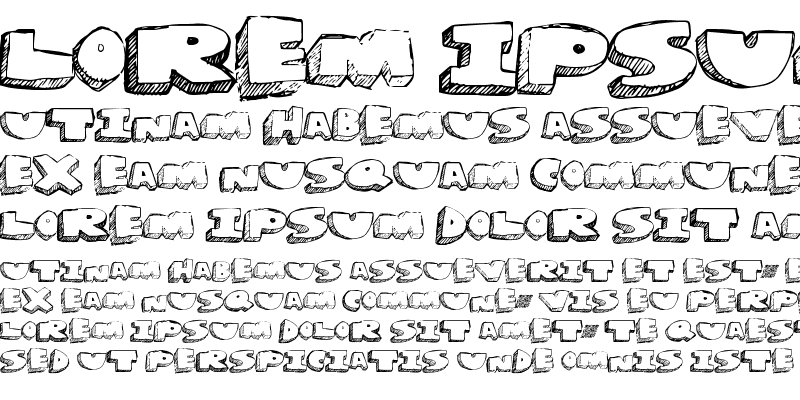 LOREM IPSU
UTINAM HABEMUS ASSUEVE
EX EAM NUSQUAM COMMUNE
LOREM IPSUM DOLOR SIT AM
UTINAM HABEMUS ASSUEVERIT ET EST E
EX EAM NUSQUAM COMMUNE VIS EU PERP
LOREM IPSUM DOLOR SIT AMET TE QUAES
SED UT PERSPICIATIS UNDE OMNIS ISTE